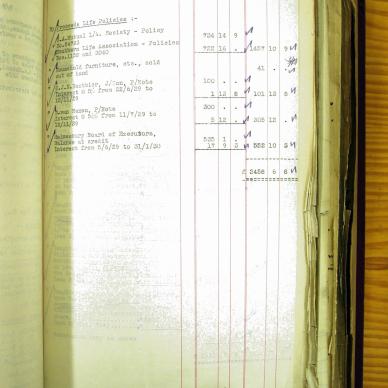 Proceeds Life Policies :-
S.A. Mutual L/A. Society - Policy 724 14 9
Southern Life Association - Policies 722 16 . 1457 10 9
Nos. and 2040
Household furniture, etc., sold 41 . .
out of hand
J/Son, P/Note 100 . .
Interest @ 8% from 22/6/29 to 1 12 8 101 12 8
12/11/29
P/Note 300 . .
Interest @ 8% from 11/7/29 to 5 12 . 305 12 .
12/11/29
Board of Executors,
Balance at credit 535 1 .
Interest from 5/6/29 to 31/1/30 17 9 3 552 10 3
£ 2458 6 8